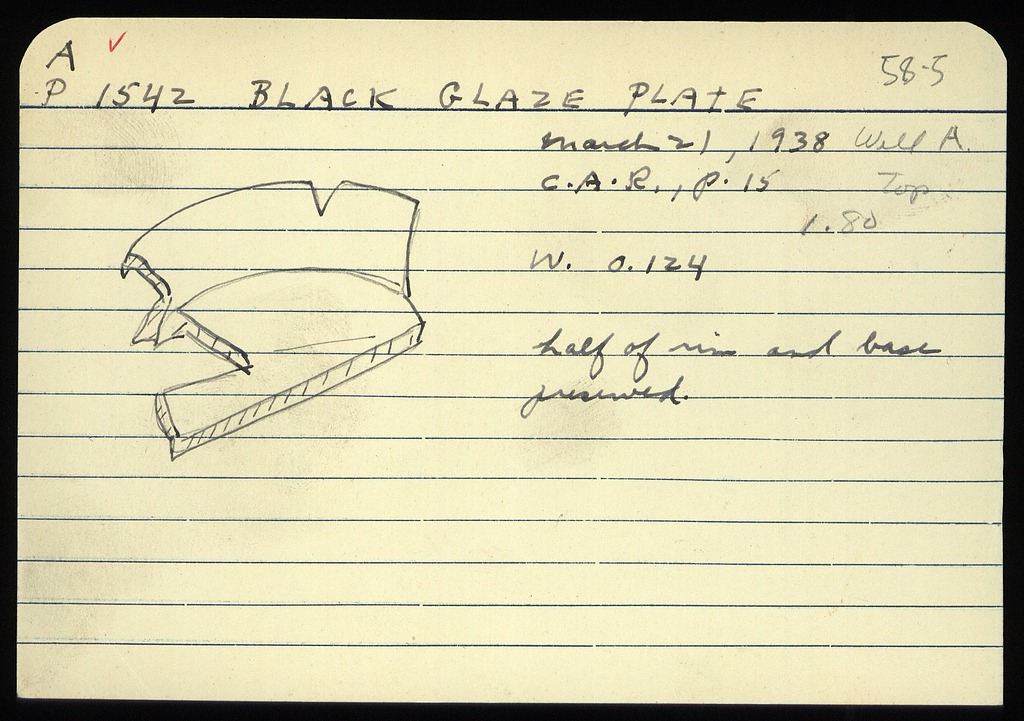 A ✓
58-5
P 1542 BLACK GLAZE PLATE
March 21, 1938 Well A.
C.A.R., p. 15 Top
1.80
W. 0.124
half of rim and base
preserved.